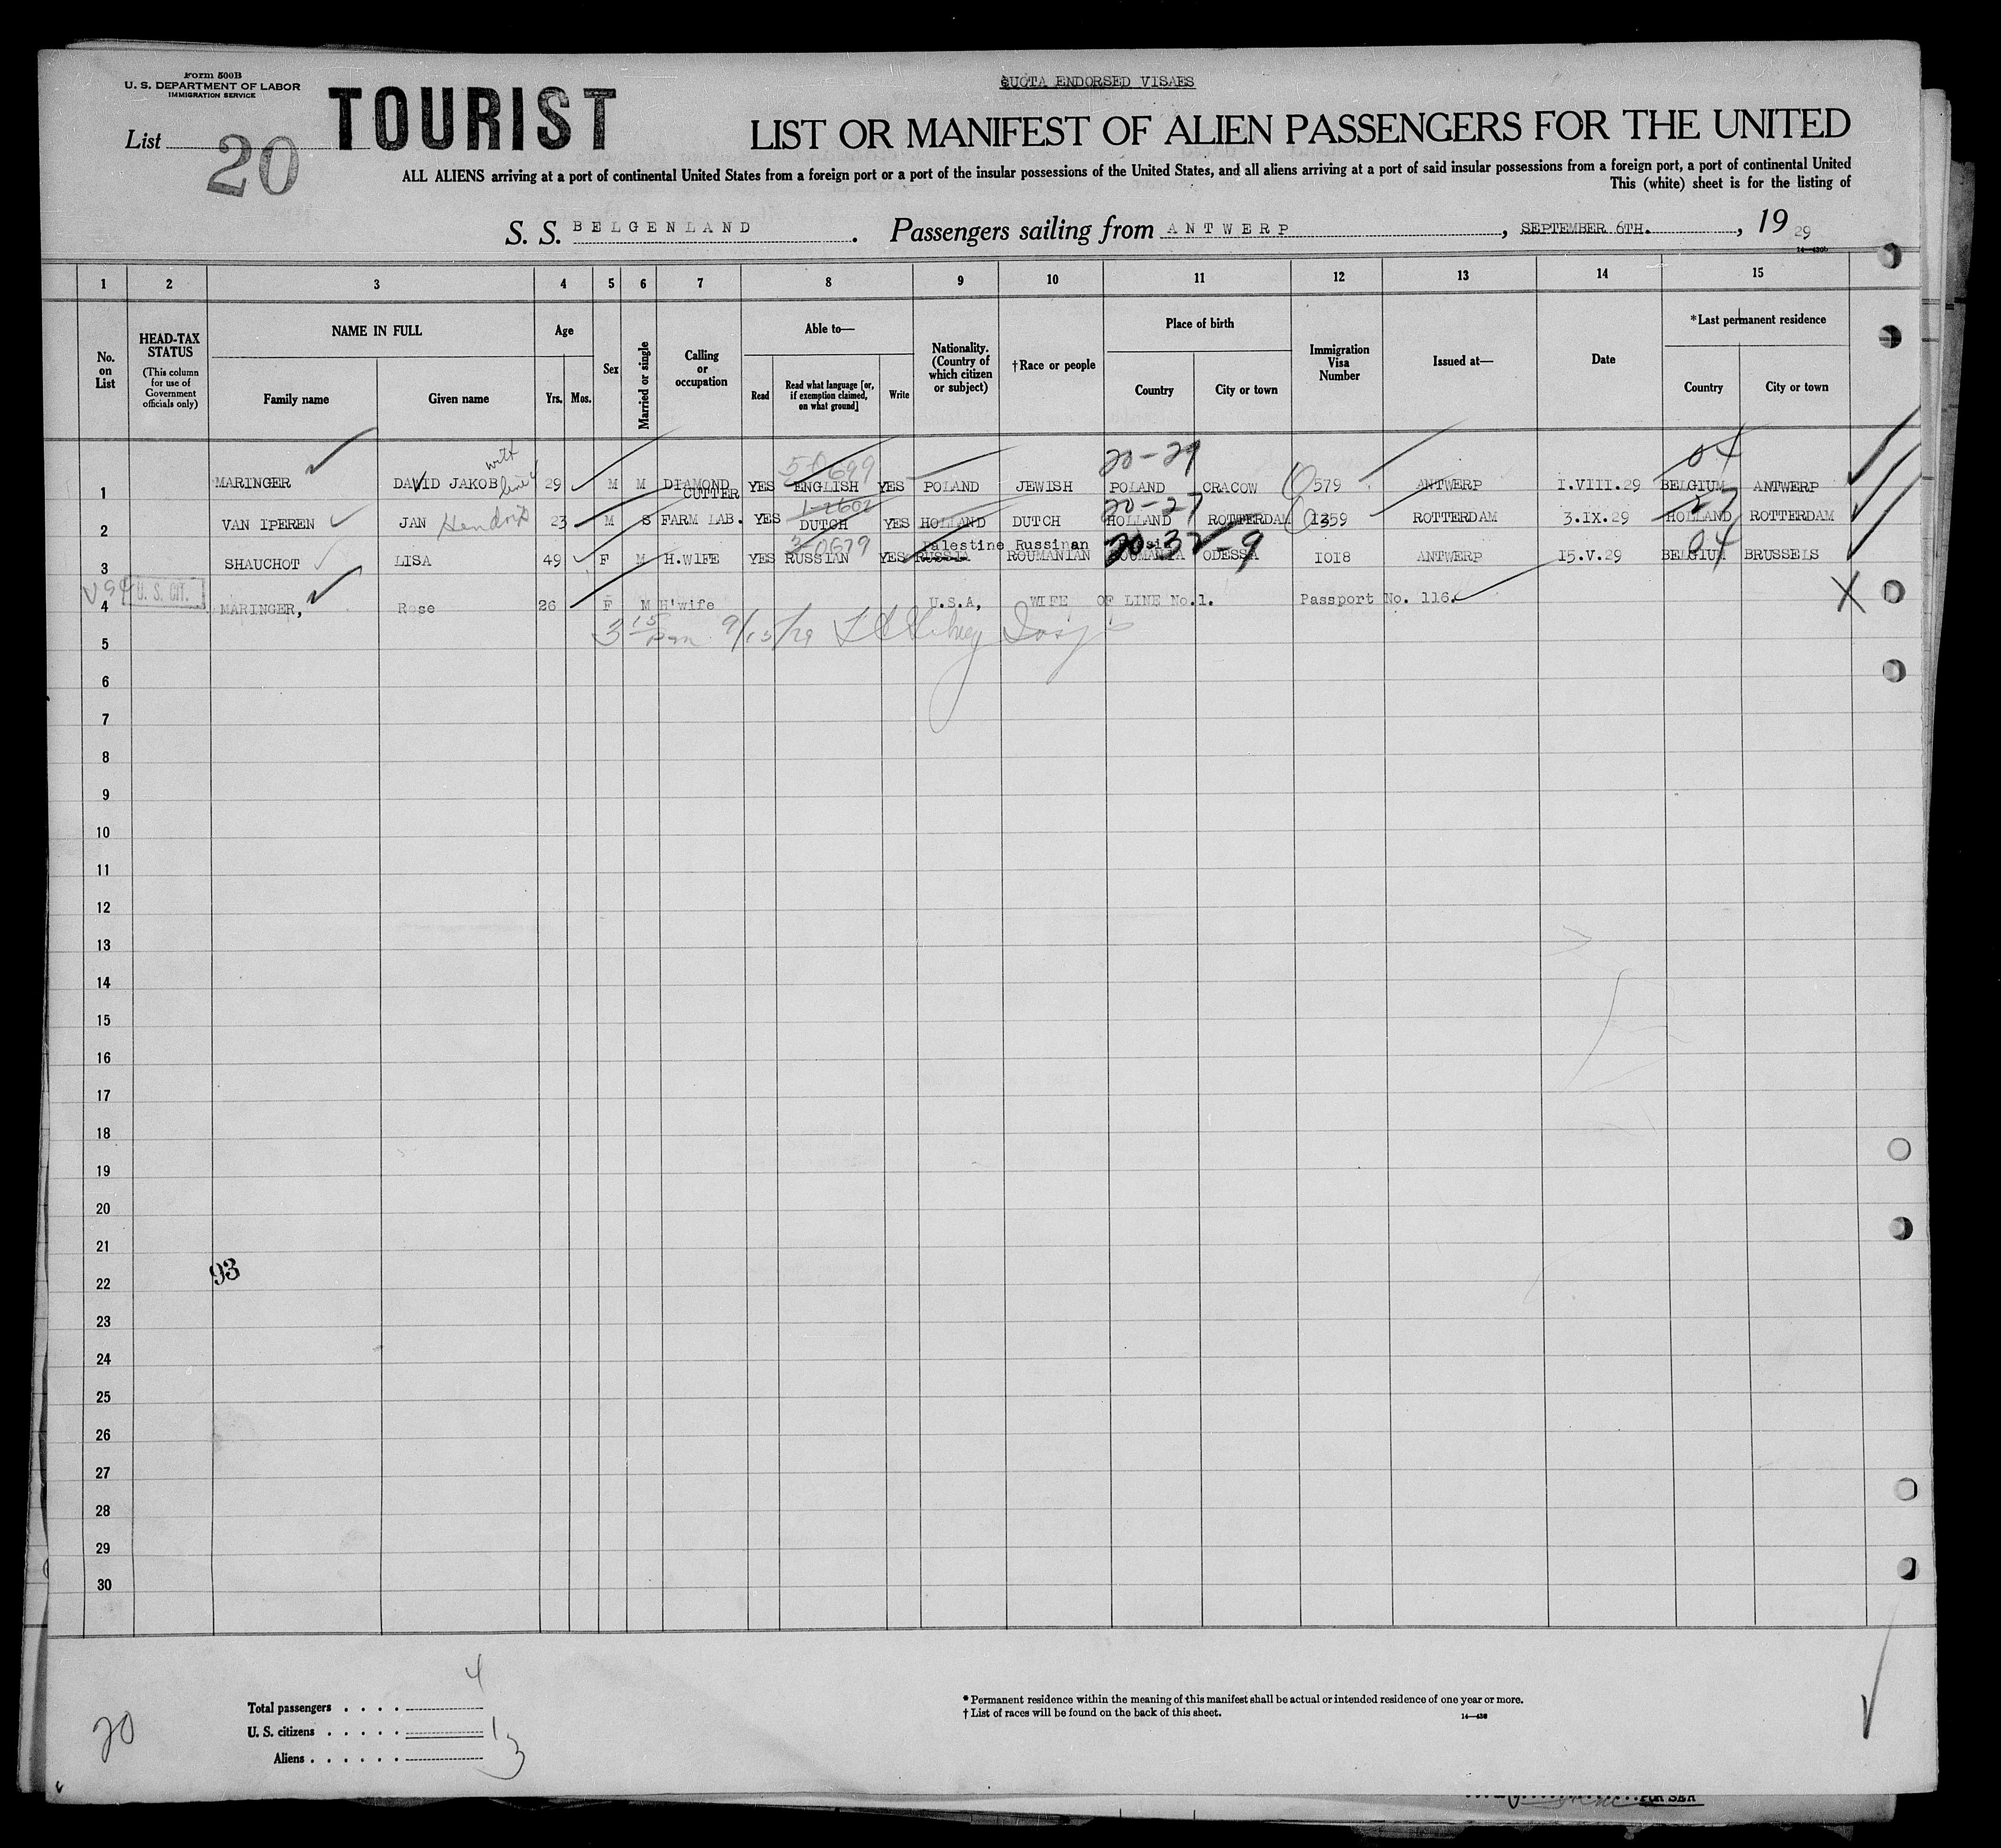 Form 500B
U. S. DEPARTMENT OF LABOR
IMMIGRATION SERVICE
TOURIST
QUOTA ENDORSED VISAES
List 20
LIST OR MANIFEST OF ALIEN PASSENGERS FOR THE UNITED
ALL ALIENS arriving at a port of continental United States from a foreign port or a port of the insular possessions of the United States, and all aliens arriving at a port of said insular possessions from a foreign port, a port of continental United
This (white) sheet is for the listing of
S. S. BELGENLAND . Passengers sailing from ANTWERP , SEPTEMBER 6TH. , 19 29
1 2 3 4 5 6 7 8 9 10 11 12 13 14 15
No. on List
HEAD-TAX STATUS (This column for use of Government officials only)
NAME IN FULL
Family name Given name
Age
Yrs. Mos.
Sex
Married or single
Calling or occupation
Able to—
Read Read what language [or, if exemption claimed, on what ground] Write
Nationality. (Country of which citizen or subject)
†Race or people
Place of birth
Country City or town
Immigration Visa Number
Issued at—
Date
*Last permanent residence
Country City or town
with
20-29 04
5-0699
1 MARINGER DAVID JAKOB line 4 29 M M DIAMOND CUTTER YES ENGLISH YES POLAND JEWISH POLAND CRACOW 579 ANTWERP I.VIII.29 BELGIUM ANTWERP
1-2602 20-27 27
2 VAN IPEREN JAN Hendrix 23 M S FARM LAB. YES DUTCH YES HOLLAND DUTCH HOLLAND ROTTERDAM 1259 ROTTERDAM 3.IX.29 HOLLAND ROTTERDAM
3-0679 Palestine Russinan 20-32-9 04
3 SHAUCHOT LISA 49 F M H.WIFE YES RUSSIAN YES RUSSIA ROUMANIAN ROUMANIA ODESSA 1018 ANTWERP 15.V.29 BELGIUM BRUSSELS
U. S. CIT.
4 MARINGER, Rose 26 F M H'wife U.S.A, WIFE OF LINE No.1. Passport No. 116. X
3 15 pm 9/15/29
5
6
7
8
9
10
11
12
13
14
15
16
17
18
19
20
21
93
22
23
24
25
26
27
28
29
30
Total passengers . . . . 4
U. S. citizens . . . . . 1
Aliens . . . . . . 3
20
* Permanent residence within the meaning of this manifest shall be actual or intended residence of one year or more.
† List of races will be found on the back of this sheet.